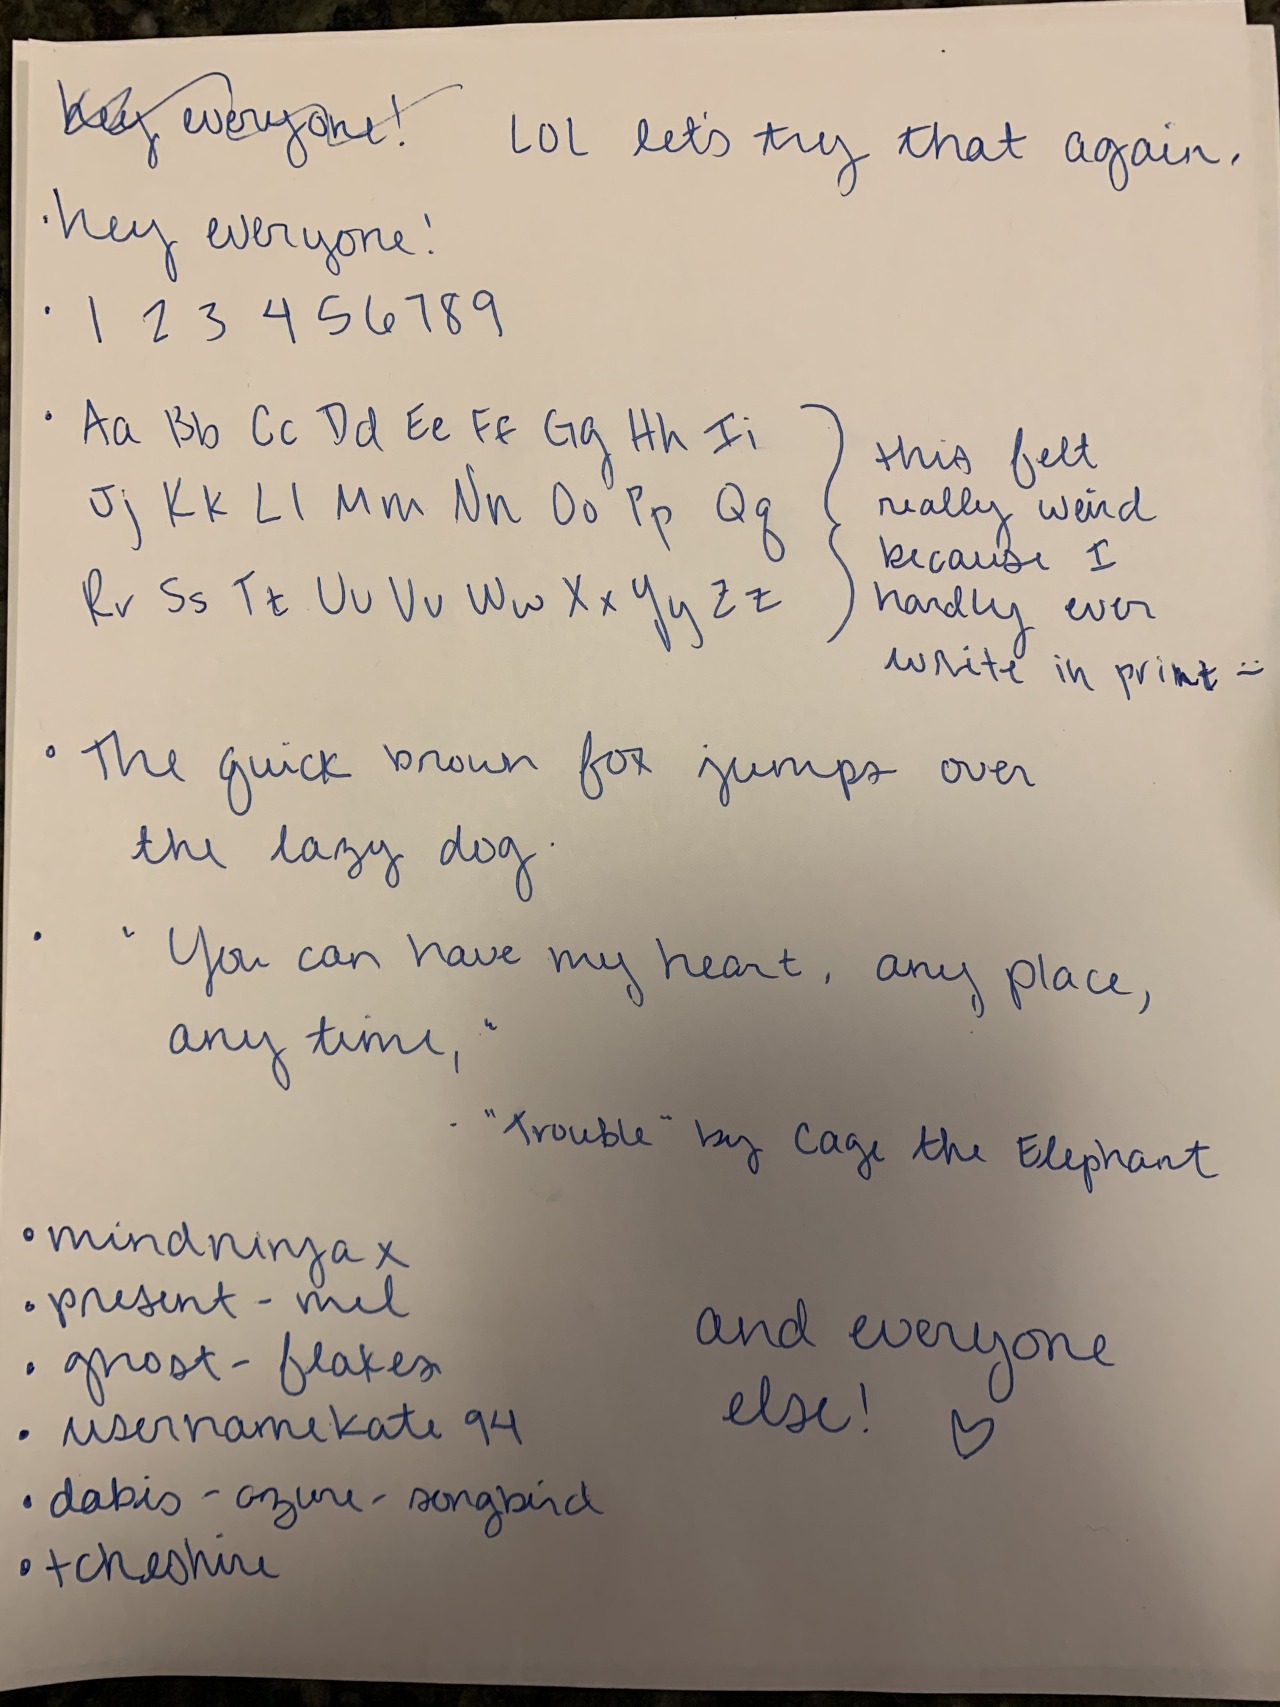 hey everyone! LOL let's try that again.
· hey everyone!
· 1 2 3 4 5 6 7 8 9
· Aa Bb Cc Dd Ee Ff Gg Hh Ii
Jj Kk Ll Mm Nn Oo Pp Qq
Rr Ss Tt Uu Vv Ww Xx Yy Zz
this felt
really weird
because I
hardly ever
write in print :)
· The quick brown fox jumps over
the lazy dog.
· "You can have my heart, any place,
any time,"
- "Trouble" by Cage the Elephant
· mindninjax
· present-mel
· ghost-flakes
· usernamekate94
· dabis-azure-songbird
· tcheshire
and everyone
else! ♡